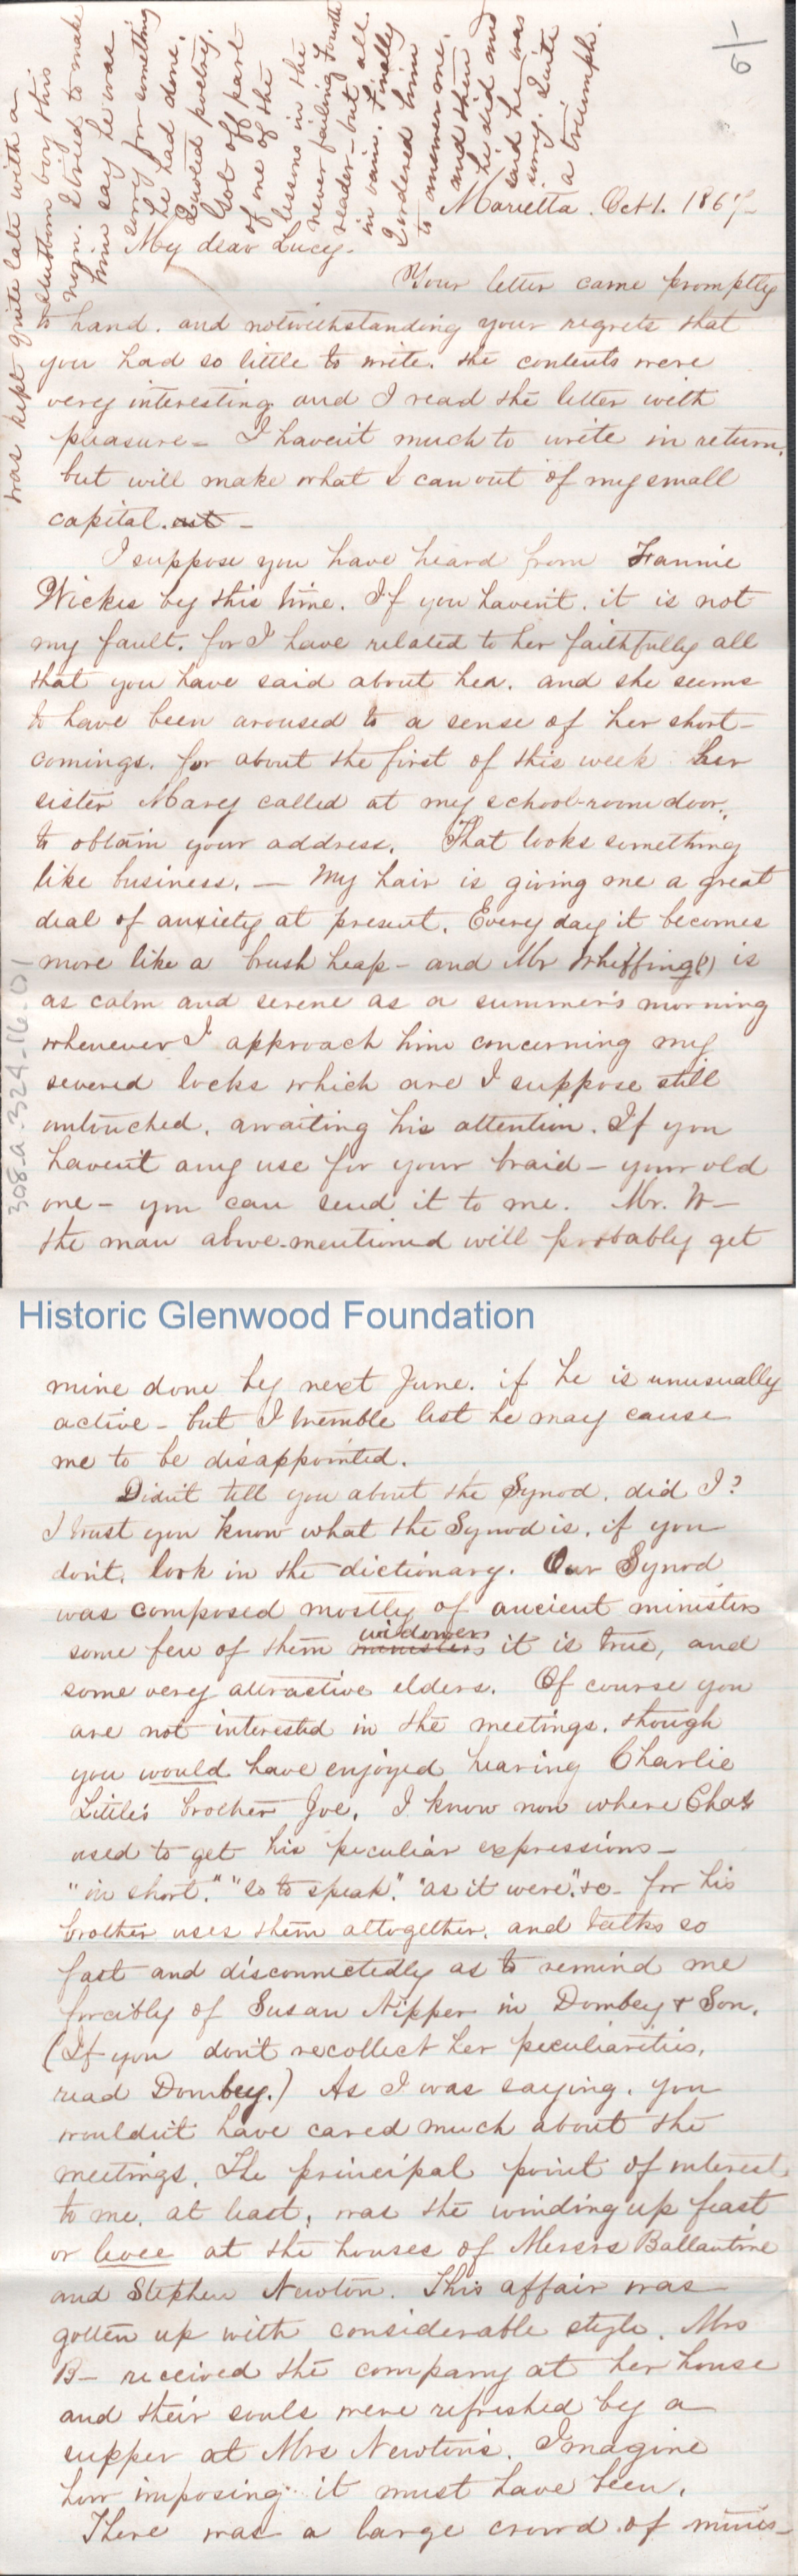 was kept quite late with a
stubborn boy this
noon. Tried to make
him say he was
sorry for something
he had done.
Quoted poetry.
Got off part
of one of the
lessons in the
never failing Fourth
reader – but all
in vain. Finally
I ordered him
to answer me,
and then
he did and
said he was
sorry. Quite
a triumph.
Marietta. Oct 1. 1867
My dear Lucy.
Your letter came promptly
to hand. and notwithstanding your regrets that
you had so little to write. the contents were
very interesting and I read the letter with
pleasure – I haven't much to write in return.
but will make what I can out of my small
capital. –
I suppose you have heard from Fannie
Wickes by this time. If you haven't. it is not
my fault. for I have related to her faithfully all
that you have said about her. and she seems
to have been aroused to a sense of her short-
comings. for about the first of this week her
sister Mary called at my school-room door,
to obtain your address. That looks something
like business. – My hair is giving me a great
deal of anxiety at present. Every day it becomes
more like a brush heap – and Mr Whiffing(?) is
as calm and serene as a summer's morning
whenever I approach him concerning my
severed locks which are I suppose still
untouched. awaiting his attention. If you
haven't any use for your braid – your old
one – you can send it to me. Mr. W–
the man above-mentioned will probably get
308-a-324-16-01
Historic Glenwood Foundation
mine done by next June. if he is unusually
active – but I tremble lest he may cause
me to be disappointed.
Didn't tell you about the Synod. did I?
I trust you know what the Synod is. if you
don't. look in the dictionary. Our Synod
was composed mostly of ancient ministers
some few of them ministers widowers it is true, and
some very attractive elders. Of course you
are not interested in the meetings. though
you would have enjoyed hearing Charlie
Little's brother Joe. I know now where Chas
used to get his peculiar expressions –
"in short." "so to speak". "as it were". &c – for his
brother uses them altogether. and talks so
fast and disconnectedly as to remind me
forcibly of Susan Nipper in Dombey & Son.
(If you don't recollect her peculiarities,
read Dombey.) As I was saying. you
wouldn't have cared much about the
meetings. The principal point of interest
to me. at least, was the winding up feast
or levee at the houses of Messrs Ballantine
and Stephen Newton. This affair was
gotten up with considerable style. Mrs
B– received the company at her house
and their souls were refreshed by a
supper at Mrs Newton's. Imagine
how imposing it must have been.
There was a large crowd of minis-